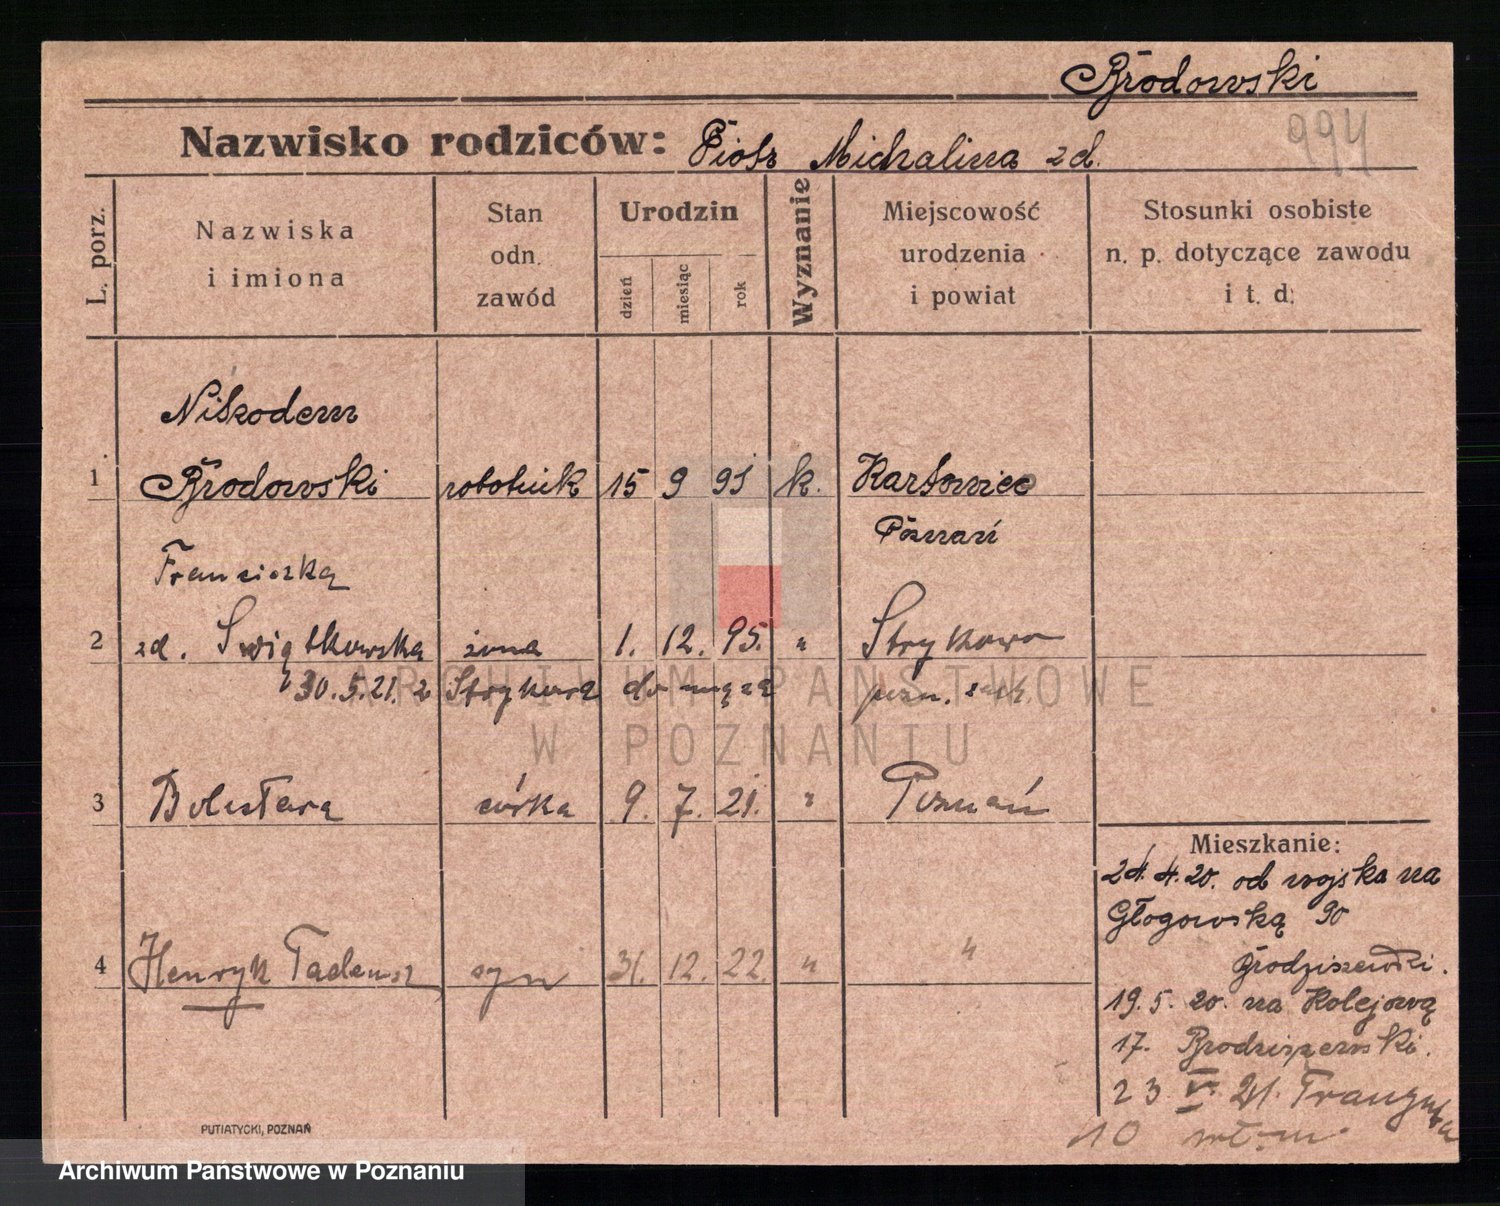 Brodowski
994
Nazwisko rodziców: Piotr Michalina zd.
L. porz.
Nazwiska
i imiona
Stan
odn.
zawód
Urodzin
dzień
miesiąc
rok
Wyznanie
Miejscowość
urodzenia
i powiat
Stosunki osobiste
n. p. dotyczące zawodu
i t. d.
Nikodem
1 Brodowski robotnik 15 9 95 k. Karłowice
Poznań
Franciszka
2 zd. Swiątkowska żona 1. 12. 95. " Strykowo
30.5.21. z Strykowa do męża pozn. zach.
3 Bolesława córka 9. 7. 21. " Poznań
4 Henryk Tadeusz syn 31. 12. 22. " "
Mieszkanie:
24. 4. 20. od wojska na
Głogowską 90
Grodziszewski.
19. 5. 20. na Kolejową
17. Brodziszewski.
23 V. 21. Traugutta
10
PUTIATYCKI, POZNAŃ
ARCHIWUM PAŃSTWOWE
W POZNANIU
Archiwum Państwowe w Poznaniu